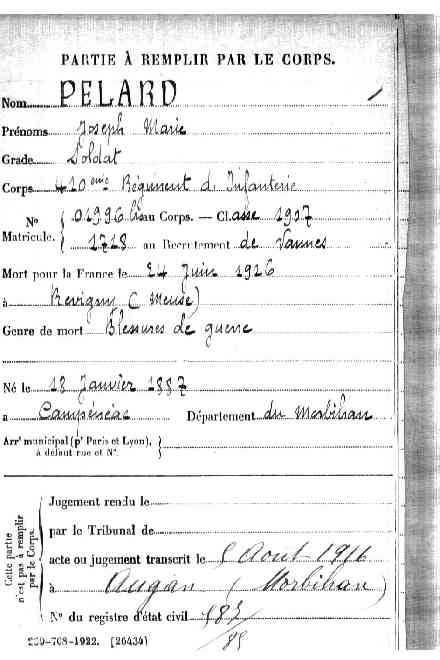 PARTIE À REMPLIR PAR LE CORPS.
Nom PELARD
Prénoms Joseph Marie
Grade Soldat
Corps 410eme Régiment d'Infanterie
N° Matricule. { 01996 bis au Corps. — Classe 1907
1718 au Recrutement de Vannes
Mort pour la France le 24 Juin 1916
à Revigny (Meuse)
Genre de mort Blessures de guerre
Né le 18 Janvier 1887
à Campénéac Département du Morbihan
Arrt municipal (pr Paris et Lyon),
à défaut rue et N°.
Cette partie
n'est pas à remplir
par le Corps.
Jugement rendu le
par le Tribunal de
acte ou jugement transcrit le 5 Aout 1916
à Augan (Morbihan)
N° du registre d'état civil 187/85
-708-1922. [26434]